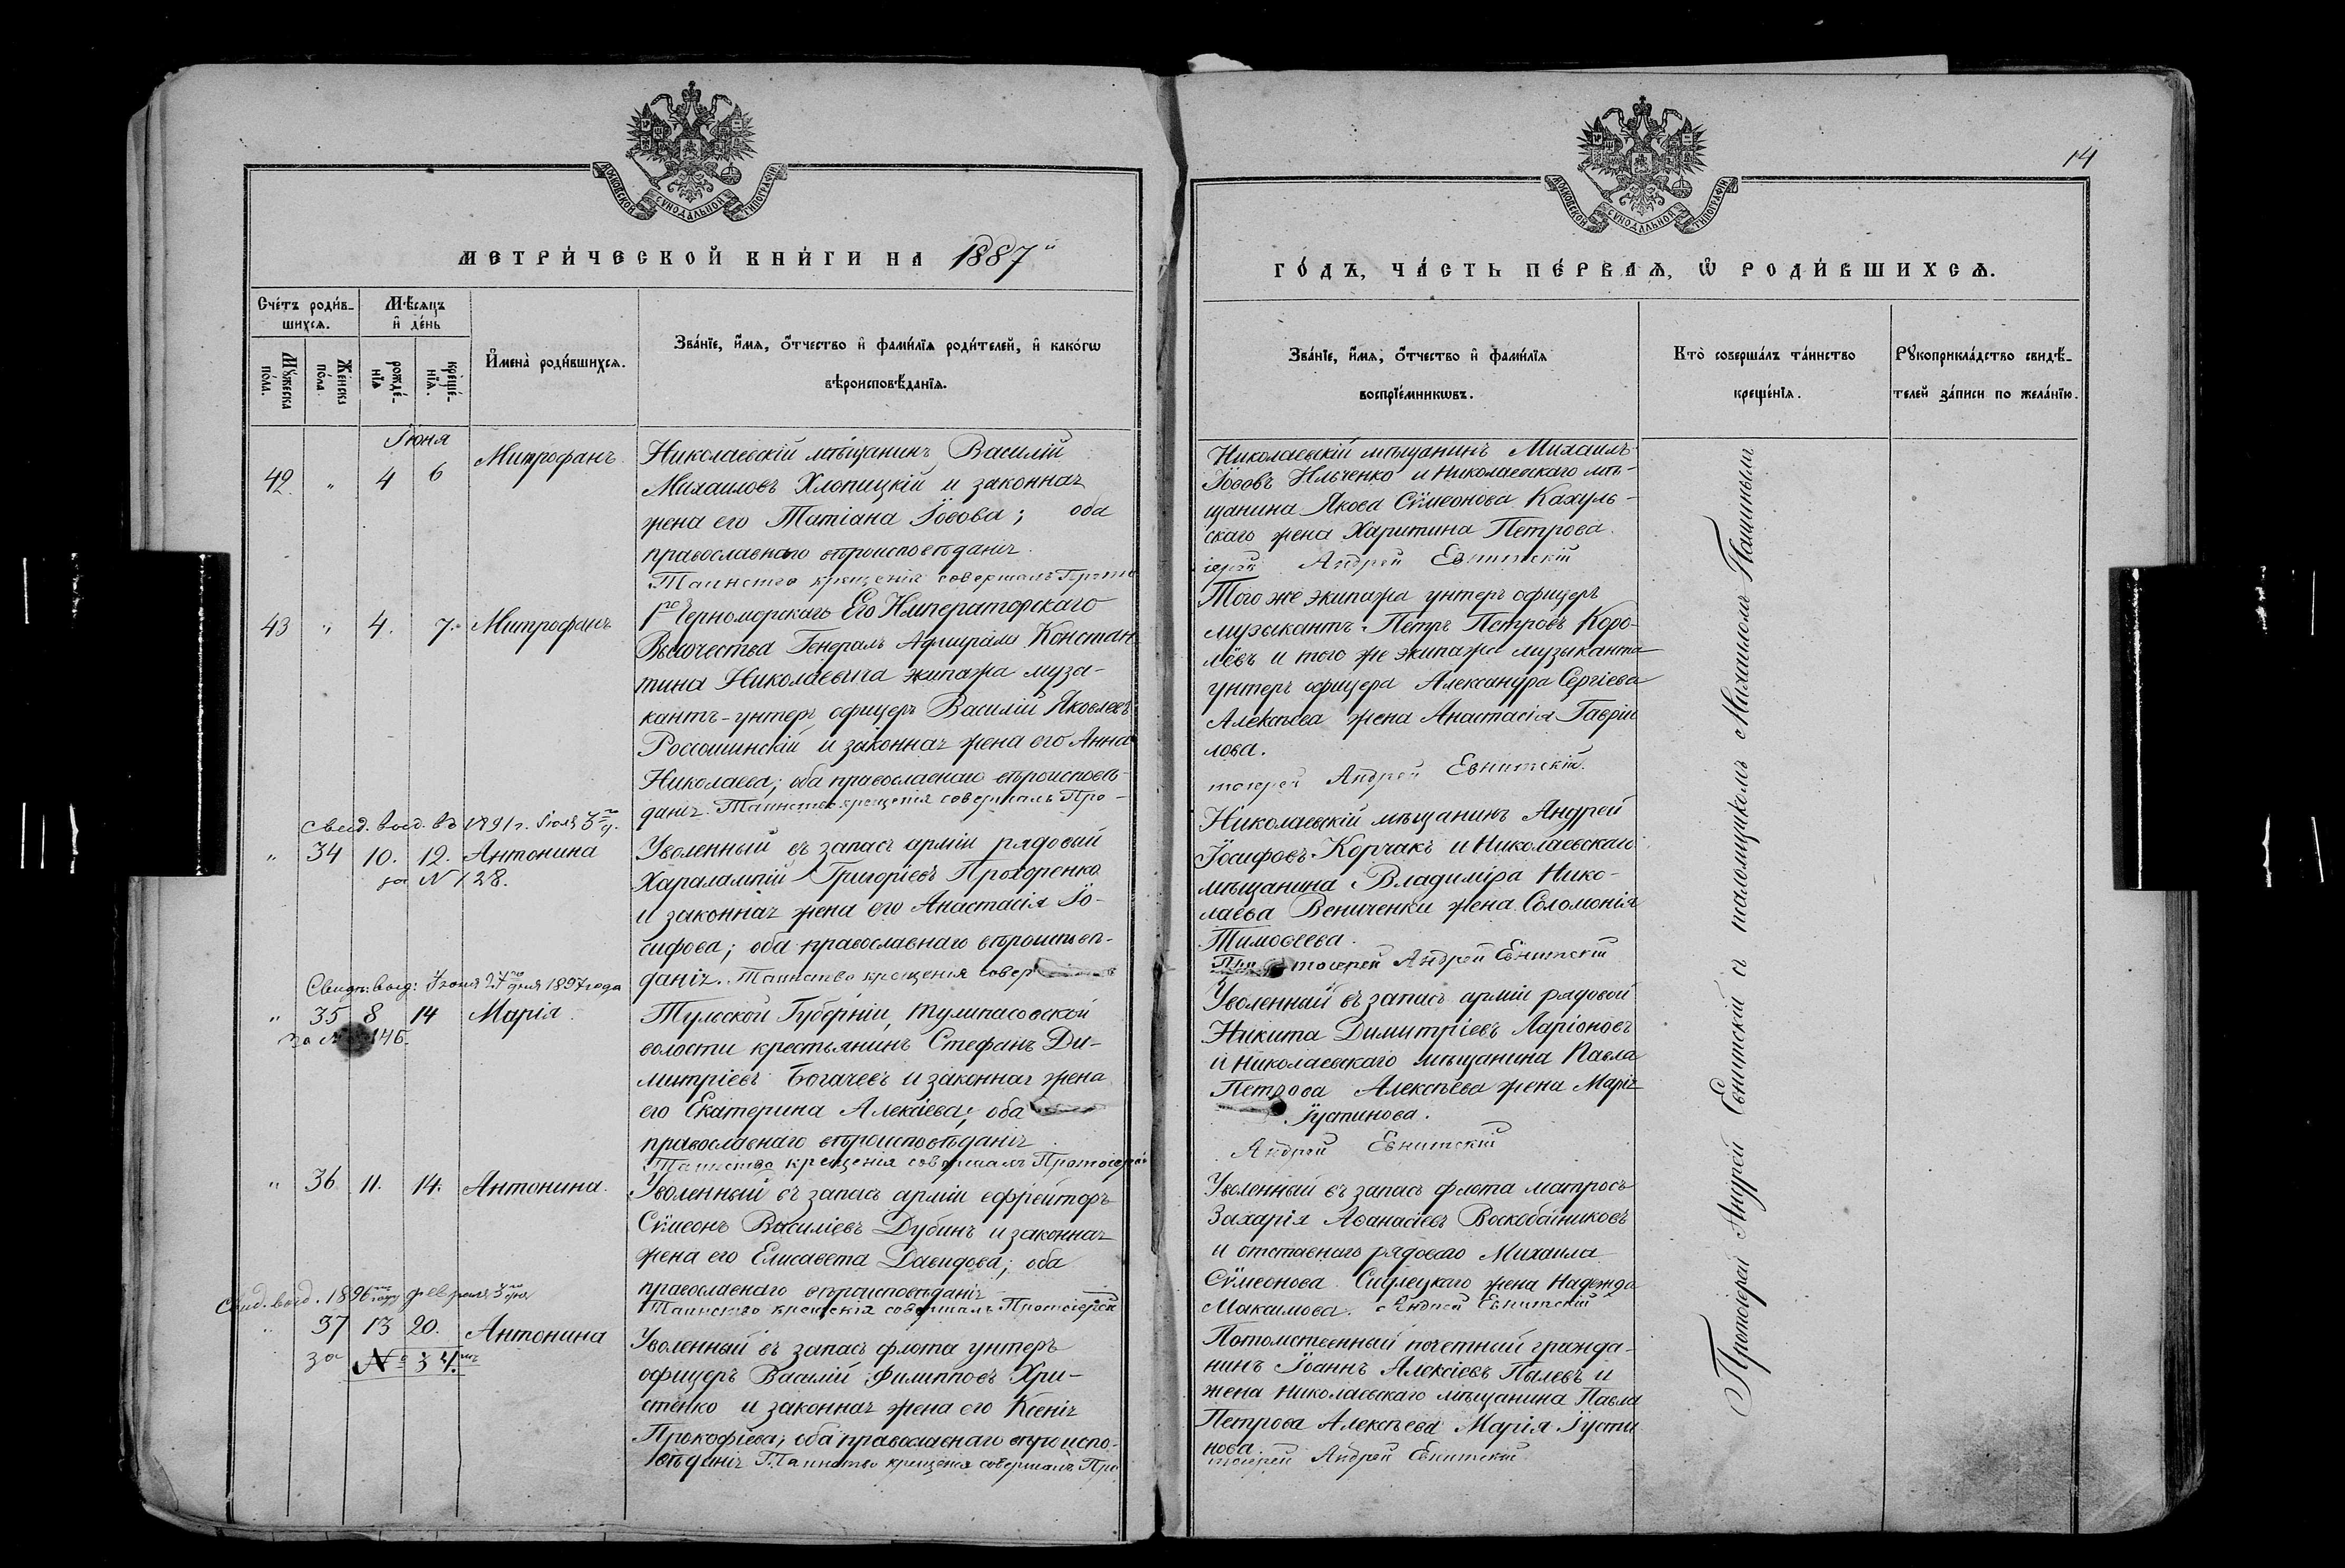 МОСКОВСКОЙ СѴНОДАЛЬНОЙ ТИПОГРАФІИ
МЕТРИ́ЧЕСКОЙ КНИ́ГИ НА 1887й
Сче́тъ роди́в-
шихсѧ.
Мѣ́сѧцъ
и҆ де́нь
Мꙋ́жеска
по́ла.
Же́нска
по́ла.
рожде́-
нїѧ
креще́-
нїѧ.
И҆мена̀ роди́вшихсѧ.
Зва́нїе, и҆́мѧ, ѻ҆́тчество и҆ фами́лїѧ роди́телей, и҆ како́гѡ
вѣроисповѣ́данїѧ.
Іюня
42 " 4 6 Митрофанъ
Николаевскій мѣщанинъ Василій
Михаиловъ Хлопицкій и законная
жена его Татіана Іовова; оба
православнаго вѣроисповѣданія.
Таинство крещенія совершалъ Прото
43 " 4. 7. Митрофанъ
1го Черноморскаго Его Императорскаго
Высочества Генералъ Адмирала Констан
тина Николаевича экипажа музы-
кантъ-унтеръ офицеръ Василій Яковлевъ
Россошинскій и законная жена его Анна
Николаева; оба православнаго вѣроисповѣ-
данія. Таинство крещенія совершалъ Про-
Свид. выд. въ 1891 г. Іюля 3го д.
" 34 10. 12. Антонина
за N 128.
Уволенный въ запасъ арміи рядовый
Харалампій Григоріевъ Прохоренко
и законная жена его Анастасія Іо-
сифова; оба православнаго вѣроисповѣ-
данія. Таинство крещенія совер
Свидѣ: выд: Іюня 27го дня 1897 года
" 35 8 14 Марія
за № 146.
Тульской Губерніи,
волости крестьянинъ Стефанъ Ди-
митріевъ Богачевъ и законная жена
его Екатерина Алексіева; оба
православнаго вѣроисповѣданія.
Таинство крещенія совершалъ Протоіерей
" 36 11. 14. Антонина.
Уволенный въ запасъ арміи ефрейторъ
Сѵмеонъ Василіевъ Дубинъ и законная
жена его Елисавета Давидова; оба
православнаго вѣроисповѣданія
Таинство крещенія совершалъ Протоіерей
Свид. выд. 1896 году февраля 3го дня
" 37 13 20. Антонина
за № 34.
Уволенный въ запасъ флота унтеръ
офицеръ Василій Филипповъ Хри-
стенко и законная жена его Ксенія
Прокофіева; оба православнаго вѣроиспо-
вѣданія. Таинство крещенія совершалъ Про
14
МОСКОВСКОЙ СѴНОДАЛЬНОЙ ТИПОГРАФІИ
ГО́ДЪ, ЧА́СТЬ ПЕ́РВАѦ, Ѡ҆ РОДИ́ВШИХСѦ.
Зва́нїе, и҆́мѧ, ѻ҆́тчество и҆ фами́лїѧ
воспрїе́мникѡвъ.
Кто̀ соверша́лъ та́инство
креще́нїѧ.
Рꙋкоприкла́дство свидѣ́-
телей за́писи по жела́нїю.
Николаевскій мѣщанинъ Михаилъ
Іововъ Ильченко и Николаевскаго мѣ-
щанина Якова Сѵмеонова Кахуль-
скаго жена Харитина Петрова.
іерей Андрей Евнитскій
Того же экипажа унтеръ офицеръ
музыкантъ Петръ Петровъ Коро-
лёвъ и того же экипажа музыканта
унтеръ офицера Александра Сергіева
Алексѣева жена Анастасія Гаврі
лова.
тоіерей Андрей Евнитскій.
Николаевскій мѣщанинъ Андрей
Іосифовъ Корчакъ и Николаевскаго
мѣщанина Владиміра Нико-
лаева Вениченки жена Соломонія
Тимоѳеева.
тоіерей Андрей Евнитскій
Уволенный въ запасъ арміи рядовой
Никита Димитріевъ Ларіоновъ
и Николаевскаго мѣщанина Павла
Петрова Алексѣева жена Марія
Іустинова.
Андрей Евнитскій
Уволенный въ запасъ флота матросъ
Захарія Аѳанасіевъ Воскобойниковъ
и отставнаго рядоваго Михаила
Сѵмеонова жена Надежда
Максимова. Андрей Евнитскій
Потомственный почетный гражда-
нинъ Іоаннъ Алексіевъ Пылевъ и
жена Николаевскаго мѣщанина Павла
Петрова Алексѣева Марія Іусти
нова.
тоіерей Андрей Евнитскій
Протоіерей Андрей Евнитскій съ псаломщикомъ Михаиломъ Пашинымъ